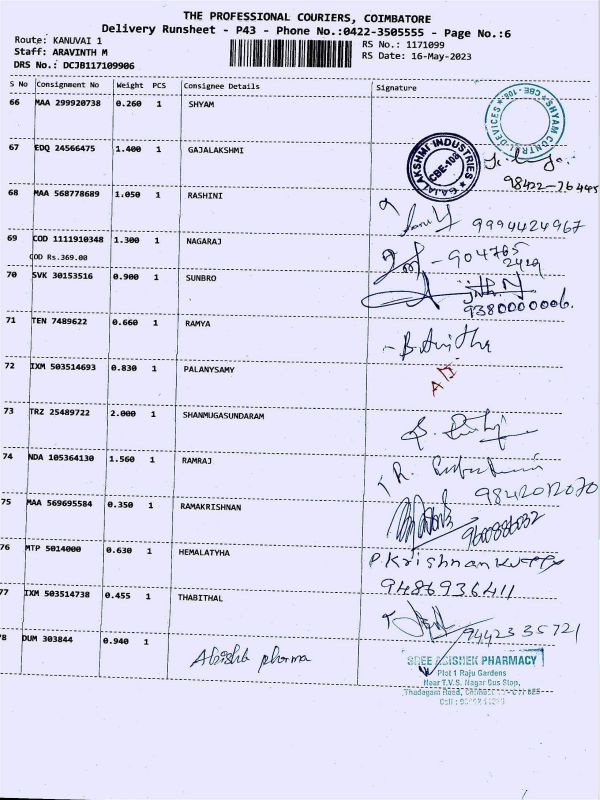 THE PROFESSIONAL COURIERS, COIMBATORE
Delivery Runsheet - P43 - Phone No.:0422-3505555 - Page No.:6
Route: KANUVAI 1
Staff: ARAVINTH M
DRS No.: DCJB117109906
RS No.: 1171099
RS Date: 16-May-2023
S No Consignment No Weight PCS Consignee Details Signature
66 MAA 299920738 0.260 1 SHYAM
SHYAM CONTROL DEVICES
67 EDQ 24566475 1.400 1 GAJALAKSHMI
GAJALAKSHMI INDUSTRIES
CBE-108
98422-76445
68 MAA 568778689 1.050 1 RASHINI
9994424967
69 COD 1111910348 1.300 1 NAGARAJ
COD Rs.369.00
904765
2429
70 SVK 30153516 0.900 1 SUNBRO
9380000006.
71 TEN 7489622 0.660 1 RAMYA
B.Anitha
72 IXM 503514693 0.830 1 PALANYSAMY
73 TRZ 25489722 2.000 1 SHANMUGASUNDARAM
74 NDA 105364130 1.560 1 RAMRAJ
R.
9842012070
75 MAA 569695584 0.350 1 RAMAKRISHNAN
9600886032
76 MTP 5014000 0.630 1 HEMALATYHA
P.Krishnankutty
9486936411
77 IXM 503514738 0.455 1 THABITHAL
9442335721
78 DUM 303844 0.940 1
pharma
SREE ABISHEK PHARMACY
Plot 1 Raju Gardens
Near T.V.S. Nagar Bus Stop,
Thadagam Road,
Cell :